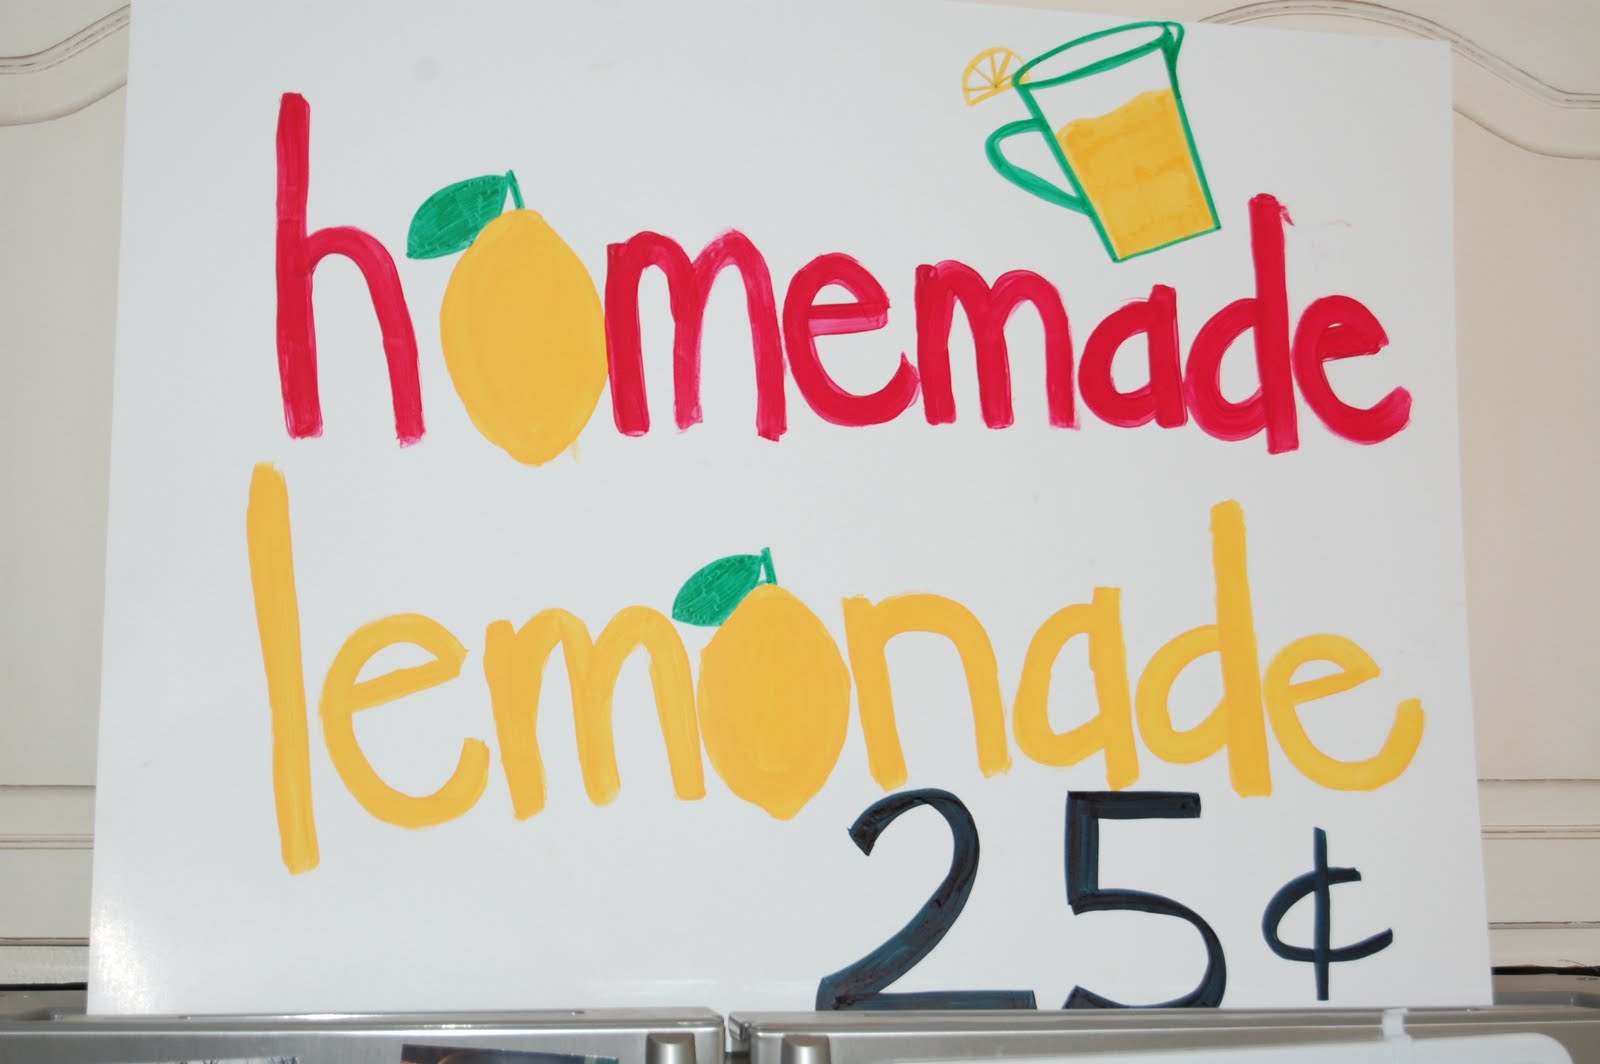 homemade
lemonade
25¢